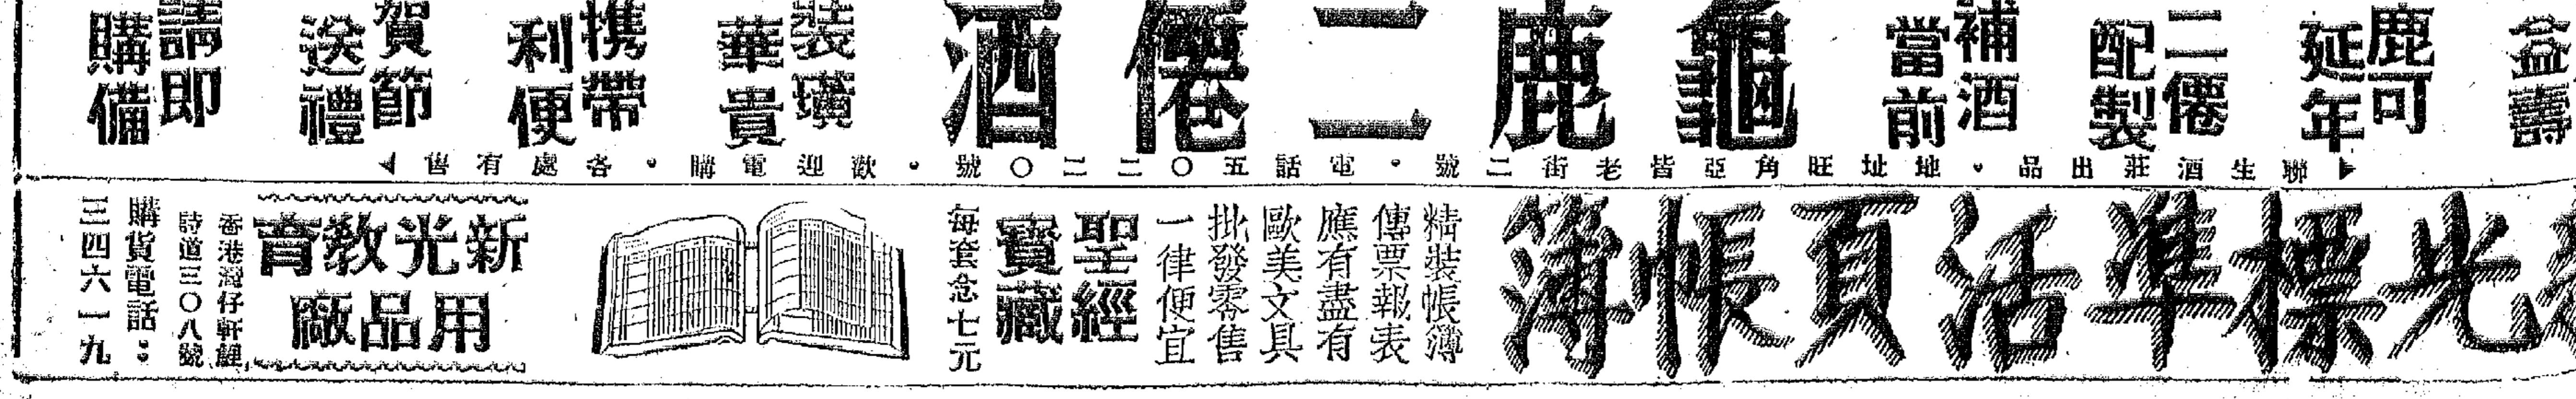 益壽
鹿可
延年
二僊
配製
補酒
當前
龜鹿二僊酒
裝璜
華貴
携帶
利便
賀節
送禮
請即
購備
聯生酒莊出品・地址旺角亞皆老街二號・電話五〇二二〇號・歡迎電購・各處有售
光標準活頁帳簿
精裝帳簿
傳票報表
應有盡有
歐美文具
批發零售
一律便宜
聖經
寶藏
每套念七元
新光教育
用品廠
香港灣仔軒鯉
詩道三〇八號
購貨電話：
三四六一九